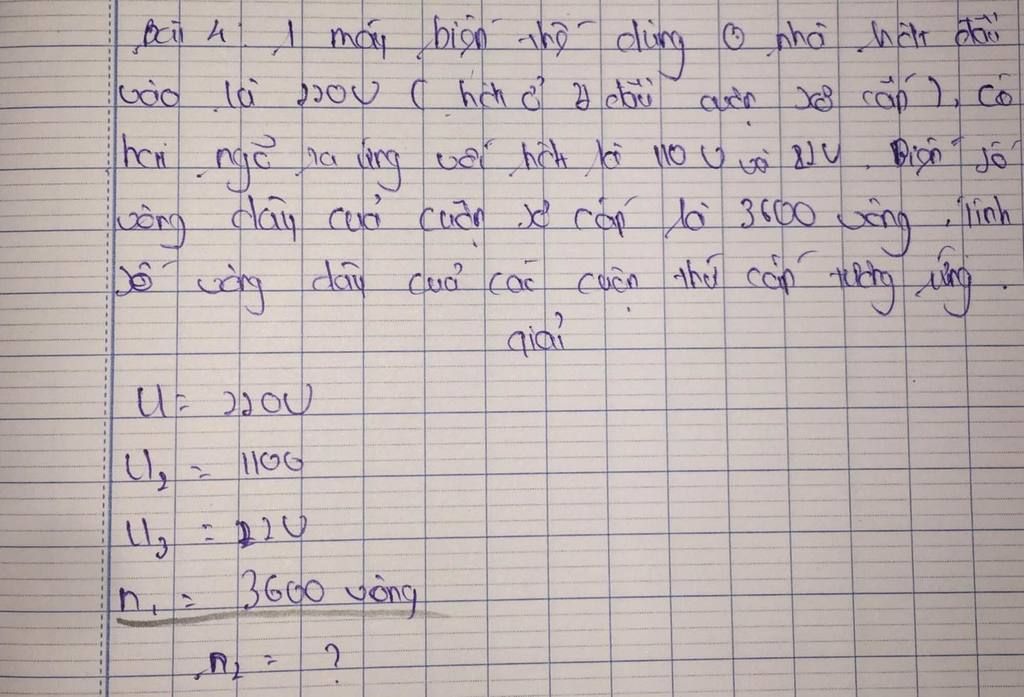 Bài 4. 1 máy biến thế dùng ở nhà hđt đầu
vào là 220V ( hđt ở 2 đầu cuộn sơ cấp ), có
hai ngõ ra ứng với hđt là 110V và 22V. Biết số
vòng dây của cuộn sơ cấp là 3600 vòng. Tính
số vòng dây của các cuộn thứ cấp tương ứng.
giải
U = 220V
U₂ = 110V
U₃ = 22V
n₁ = 3600 vòng
n₂ = ?